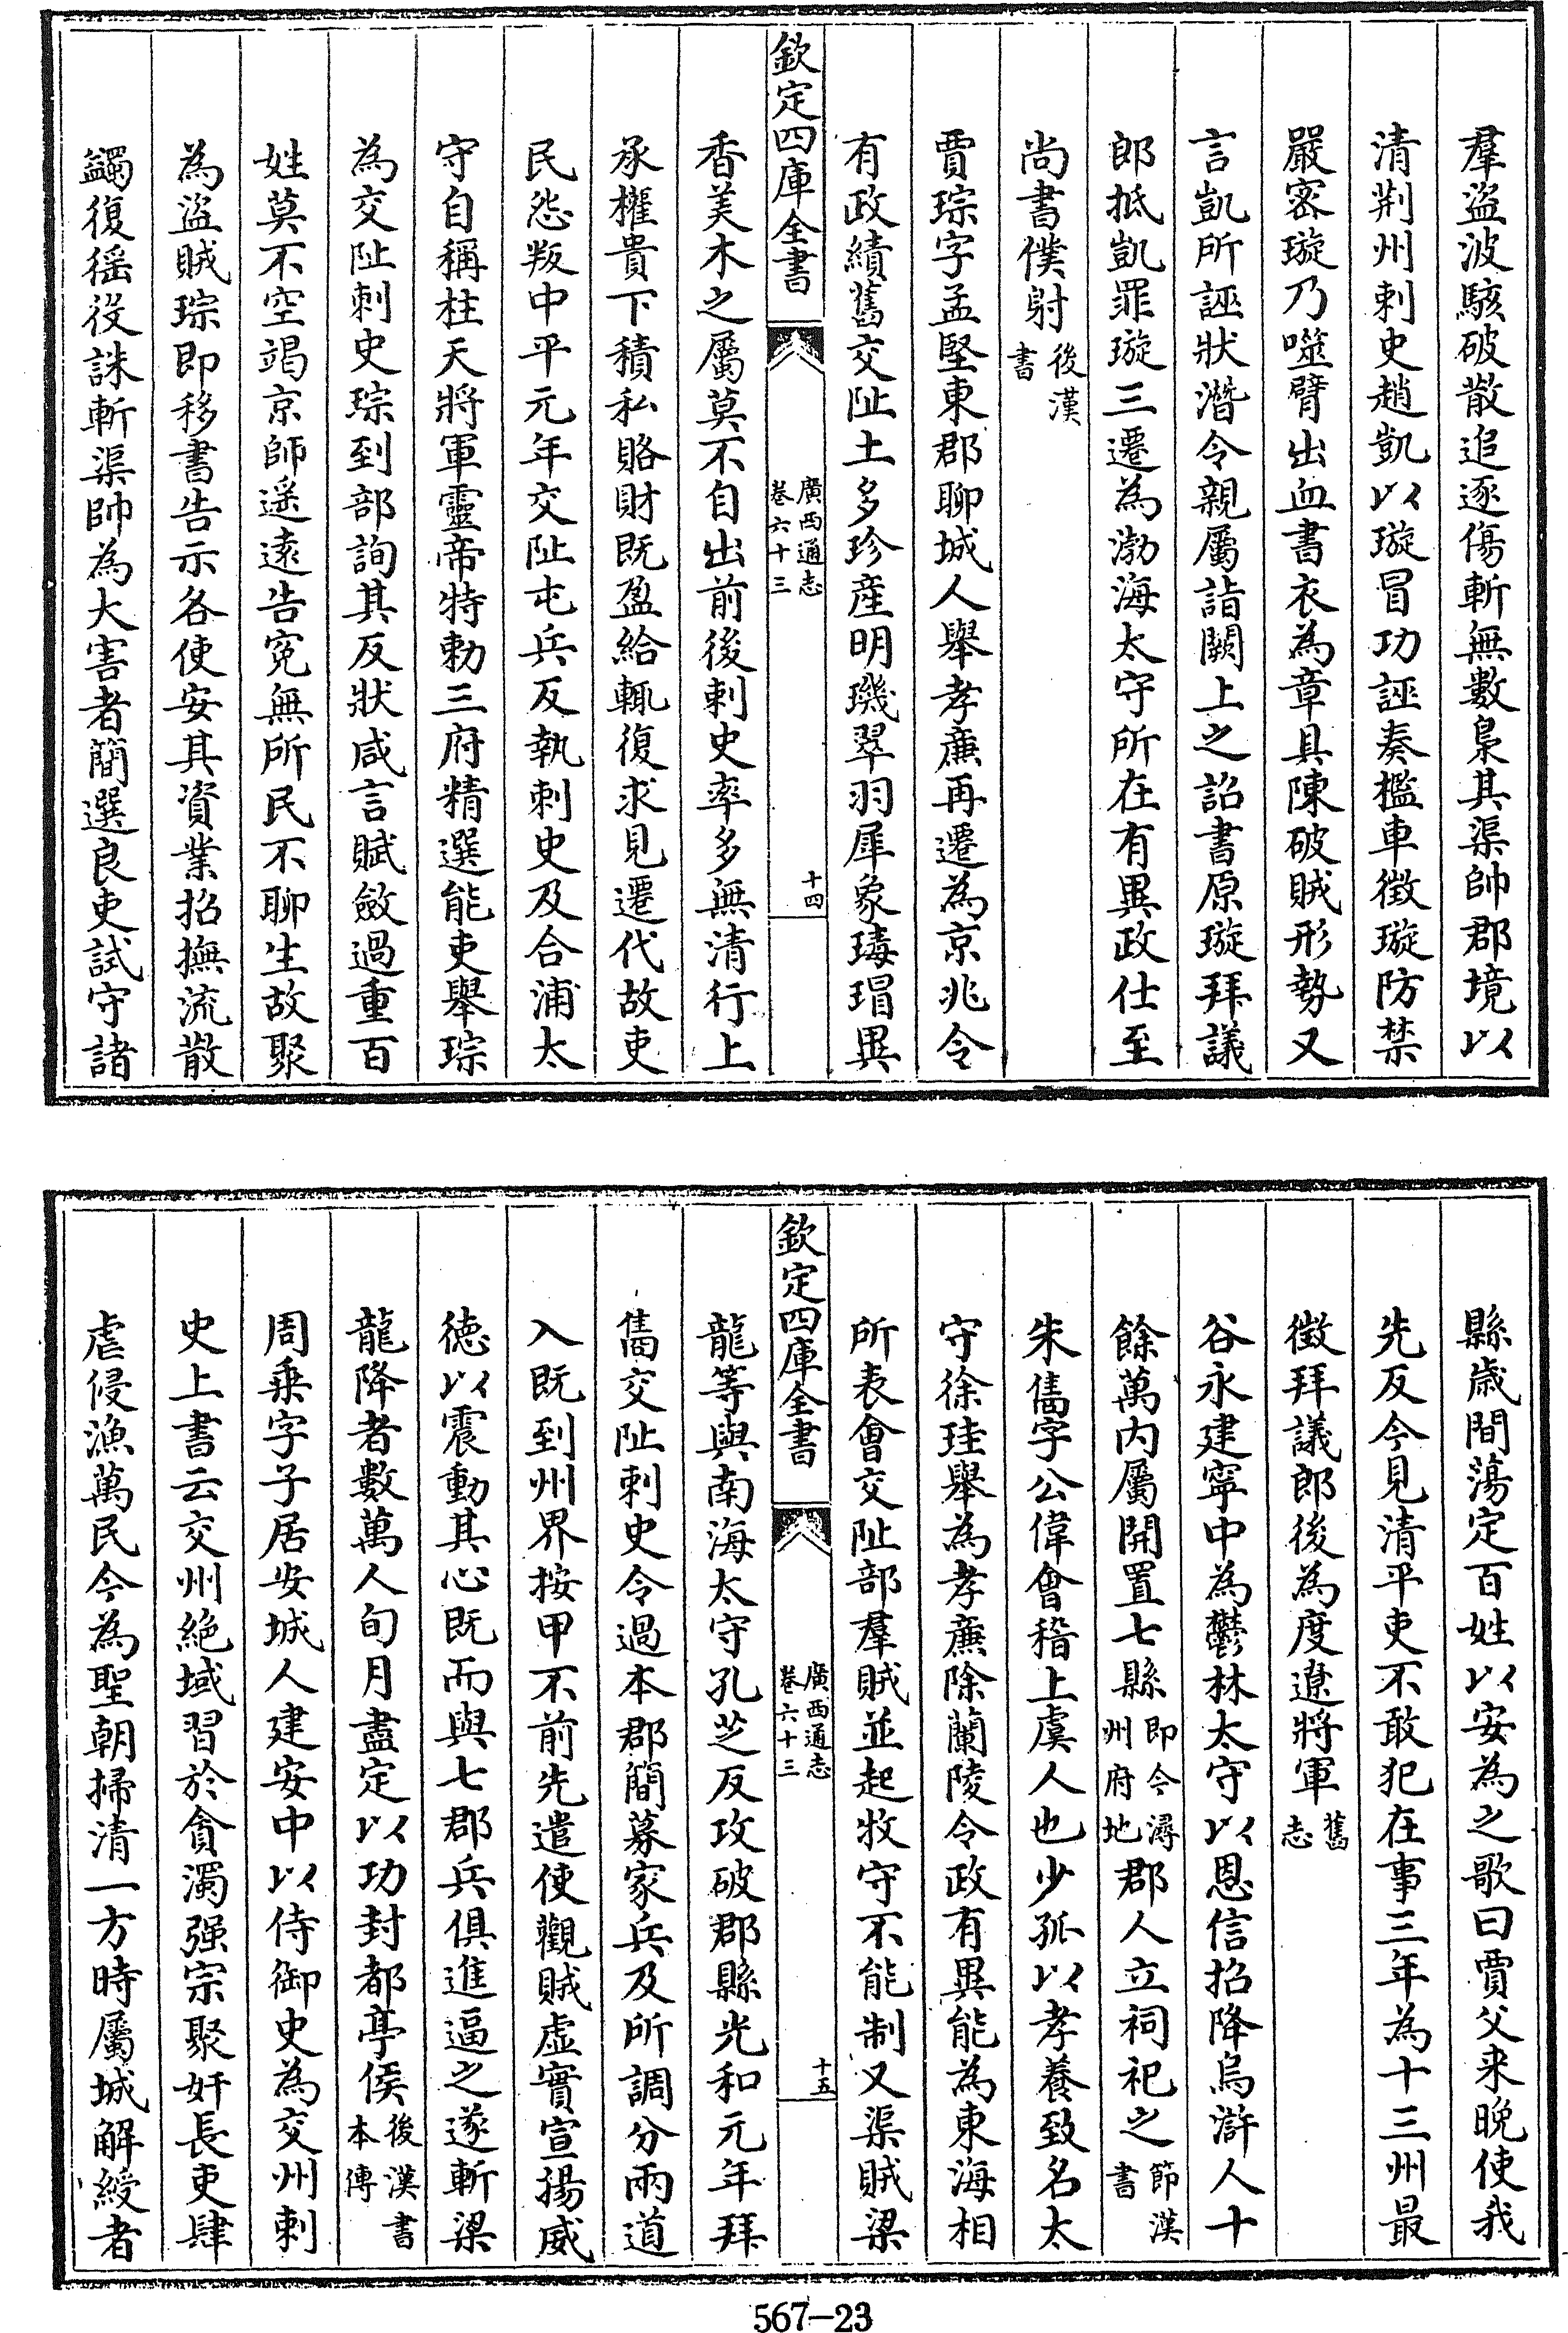 羣盜波駭破散追逐傷斬無數梟其渠帥郡境以
清荆州刺史趙凱以璇冒功誣奏檻車徵璇防禁
嚴宻璇乃噬臂出血書衣為章具陳破賊形勢又
言凱所誣狀潛令親屬詣闕上之詔書原璇拜議
郎抵凱罪璇三遷為渤海太守所在有異政仕至
尚書僕射後漢書
賈琮字孟堅東郡聊城人舉孝亷再遷為京兆令
有政績舊交阯土多珍産明璣翠羽犀象瑇瑁異
欽定四庫全書
廣西通志
卷六十三
十四
香美木之屬莫不自出前後刺史率多無清行上
承權貴下積私賂財既盈給輒復求見遷代故吏
民怨叛中平元年交阯屯兵反執刺史及合浦太
守自稱柱天將軍靈帝特勅三府精選能吏舉琮
為交阯刺史琮到部詢其反狀咸言賦斂過重百
姓莫不空竭京師遥逺告寃無所民不聊生故聚
為盜賊琮即移書告示各使安其資業招撫流散
蠲復徭役誅斬渠帥為大害者簡選良吏試守諸
縣歲間蕩定百姓以安為之歌曰賈父来晚使我
先反今見清平吏不敢犯在事三年為十三州最
徵拜議郎後為度遼將軍舊志
谷永建寧中為鬱林太守以恩信招降烏滸人十
餘萬内屬開置七縣即今潯州府地郡人立祠祀之節漢書
朱雋字公偉會稽上虞人也少孤以孝養致名太
守徐珪舉為孝亷除蘭陵令政有異能為東海相
所表會交阯部羣賊並起牧守不能制又渠賊梁
欽定四庫全書
廣西通志
卷六十三
十五
龍等與南海太守孔芝反攻破郡縣光和元年拜
雋交阯刺史令過本郡簡募家兵及所調分兩道
入既到州界按甲不前先遣使觀賊虚實宣揚威
徳以震動其心既而與七郡兵俱進逼之遂斬梁
龍降者數萬人旬月盡定以功封都亭侯後漢書本傳
周乗字子居安城人建安中以侍御史為交州刺
史上書云交州絶域習於貪濁强宗聚奸長吏肆
虐侵漁萬民今為聖朝掃清一方時屬城解綬者
567-23